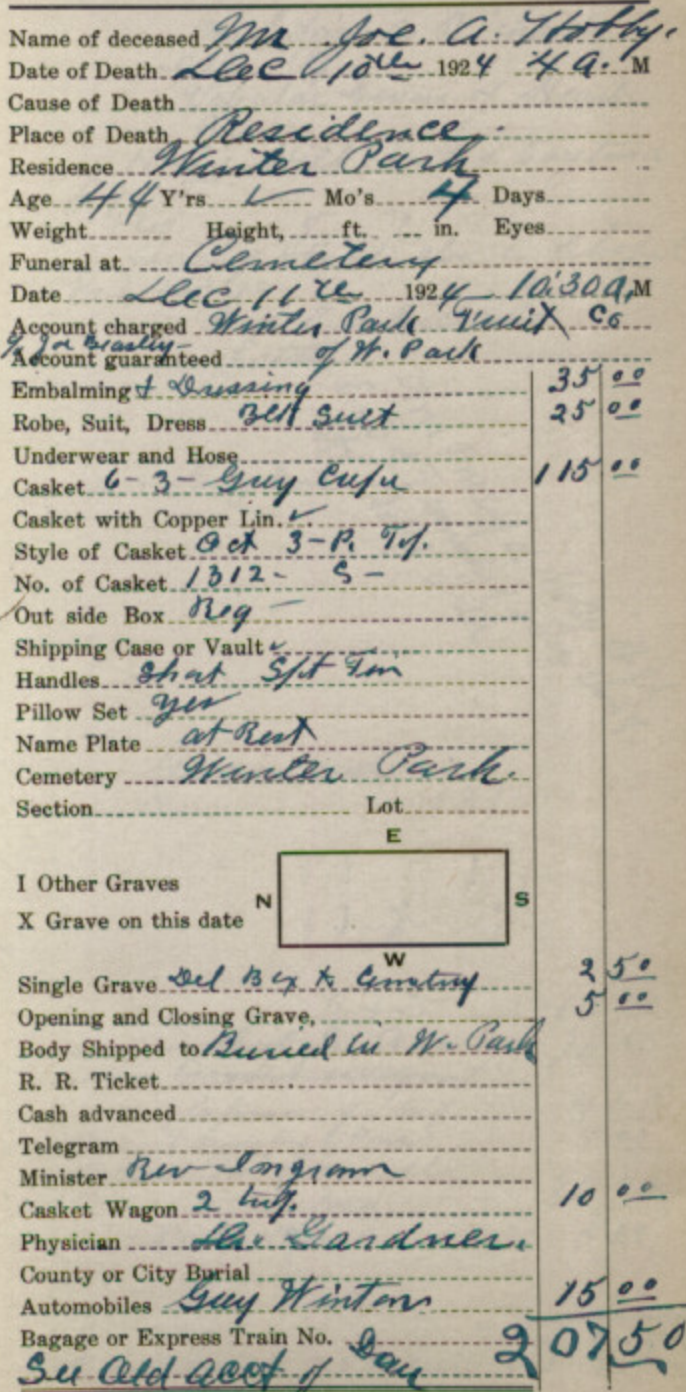 Name of deceased Mr Joe. A. Hobby.
Date of Death Dec 10th 1924 4 a. M
Cause of Death
Place of Death Residence.
Residence Winter Park
Age 44 Y'rs ✓ Mo's 4 Days
Weight Height, ft. in. Eyes
Funeral at Cemetery
Date Dec 11th 1924 10:30 a. M
Account charged Winter Park Fruit Co
% Joe Beasley
Account guaranteed of W. Park
Embalming & Dressing 35 00
Robe, Suit, Dress Blk Suit 25 00
Underwear and Hose
Casket 6-3- Gray 115 00
Casket with Copper Lin. ✓
Style of Casket Oct 3-P. Tf.
No. of Casket 1312- S-
Out side Box Reg
Shipping Case or Vault ✓
Handles Short
Pillow Set yes
Name Plate at Rest
Cemetery Winter Park.
Section Lot
E
I Other Graves
N S
X Grave on this date
W
Single Grave Del Box to Cemetery 2 50
Opening and Closing Grave, 5 00
Body Shipped to Buried in W. Park
R. R. Ticket
Cash advanced
Telegram
Minister Rev Ingram
Casket Wagon 2 10 00
Physician Dr. Gardner.
County or City Burial
Automobiles Guy Winton 15 00
Bagage or Express Train No. 207 50
See Old acct of Dau